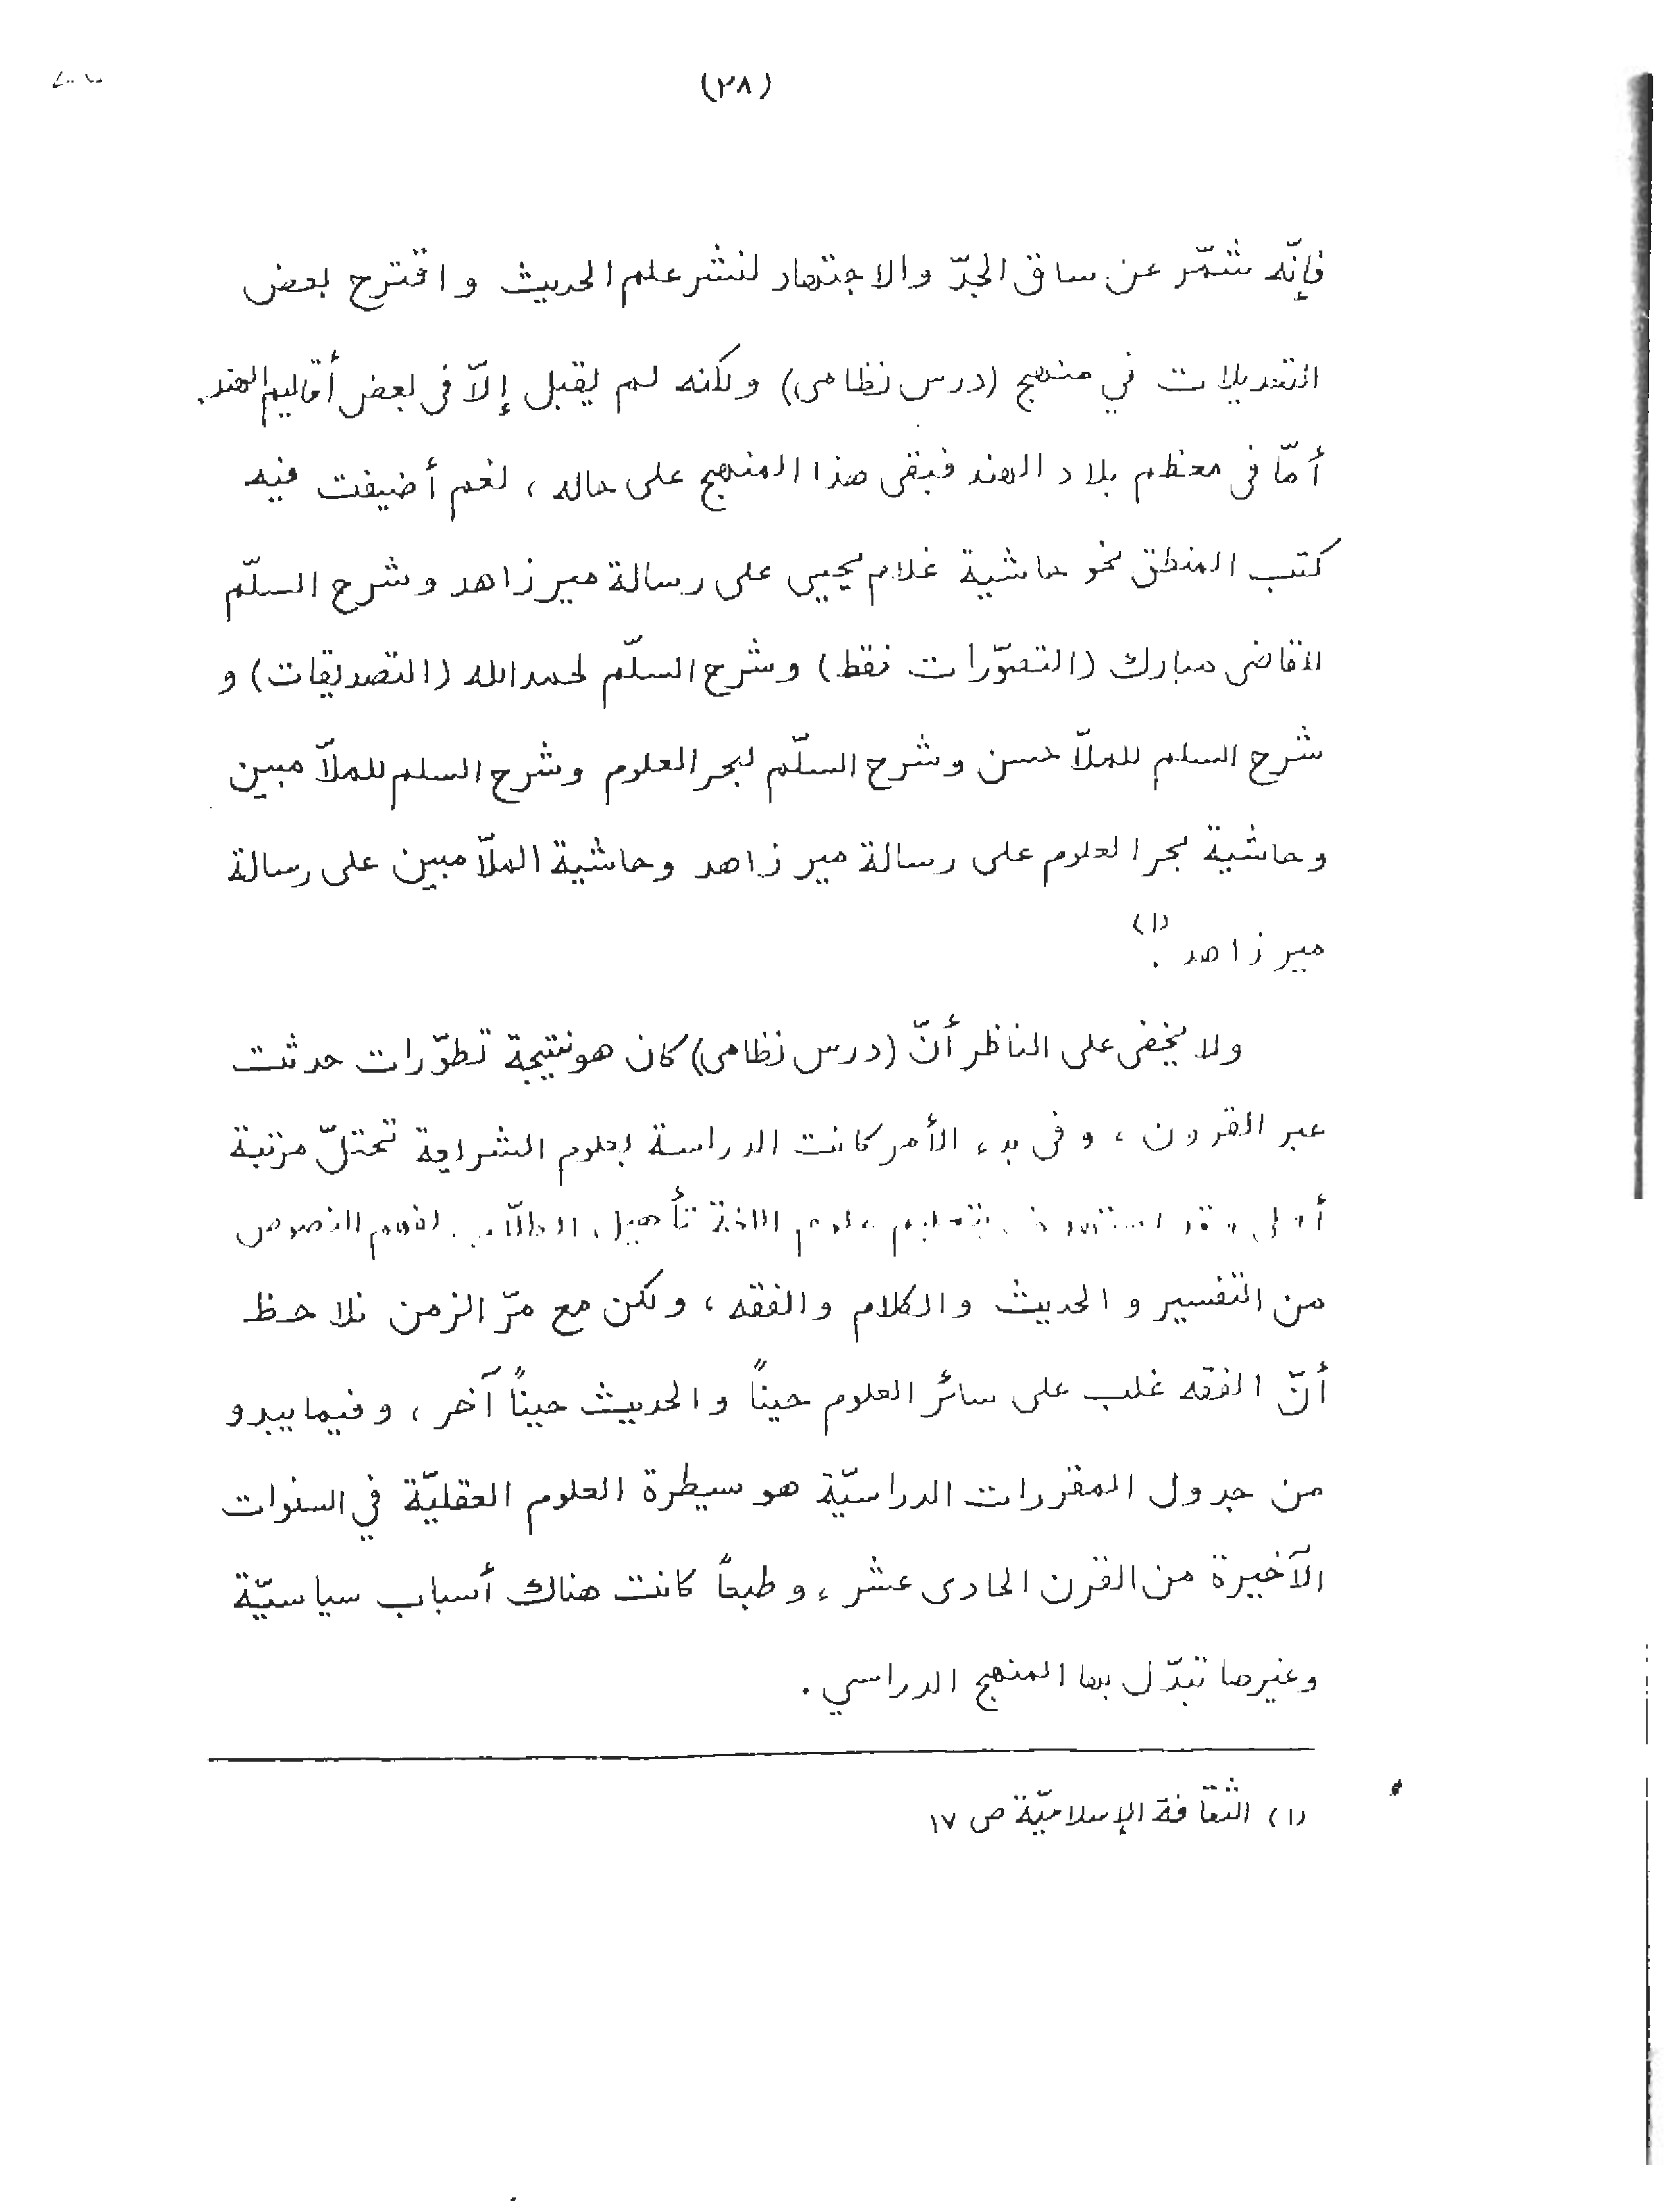 (٢٨)
فإنّه شمّر عن ساق الجدّ والاجتهاد لنشر علم الحديث واقترح بعض
التعديلات في منهج (درس نظامى) ولكنه لم يقبل إلاّ فى بعض أقاليم الهند.
أمّا فى معظم بلاد الهند فبقى هذا المنهج على حاله ، نعم أضيفت فيه
كتب المنطق نحو حاشية غلام يحيى على رسالة مير زاهد وشرح السلّم
للقاضى مبارك (التصوّرات فقط) وشرح السلّم لحمد الله (التصديقات) و
شرح السلم للملاّ حسن وشرح السلّم لبحر العلوم وشرح السلم للملاّ مبين
وحاشية بحر العلوم على رسالة مير زاهد وحاشية الملاّ مبين على رسالة
مير زاهد (١).
ولا يخفى على الناظر أنّ (درس نظامى) كان هو نتيجة تطوّرات حدثت
عبر القرون ، وفى بدء الأمر كانت الدراسة بعلوم الشرايعة تحتلّ مرتبة
أولى وقد استهدف بتعليم علوم اللغة تأهيل الطلاّب لفهم النصوص
من التفسير والحديث والكلام والفقه ، ولكن مع مرّ الزمن نلاحظ
أنّ الفقه غلب على سائر العلوم حيناً والحديث حيناً آخر ، وفيما يبدو
من جدول المقررات الدراسيّة هو سيطرة العلوم العقليّة في السنوات
الآخيرة من القرن الحادى عشر ، وطبعاً كانت هناك أسباب سياسيّة
وغيرها تبدّل بها المنهج الدراسي .
(١) الثقافة الإسلاميّة ص ١٧